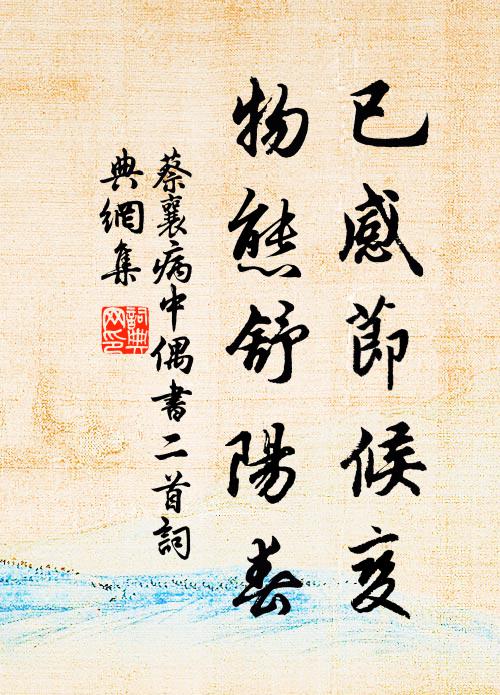 已感節候变
物態舒陽春
蔡襄病中偶書二首詞
典網集
詞典
网印